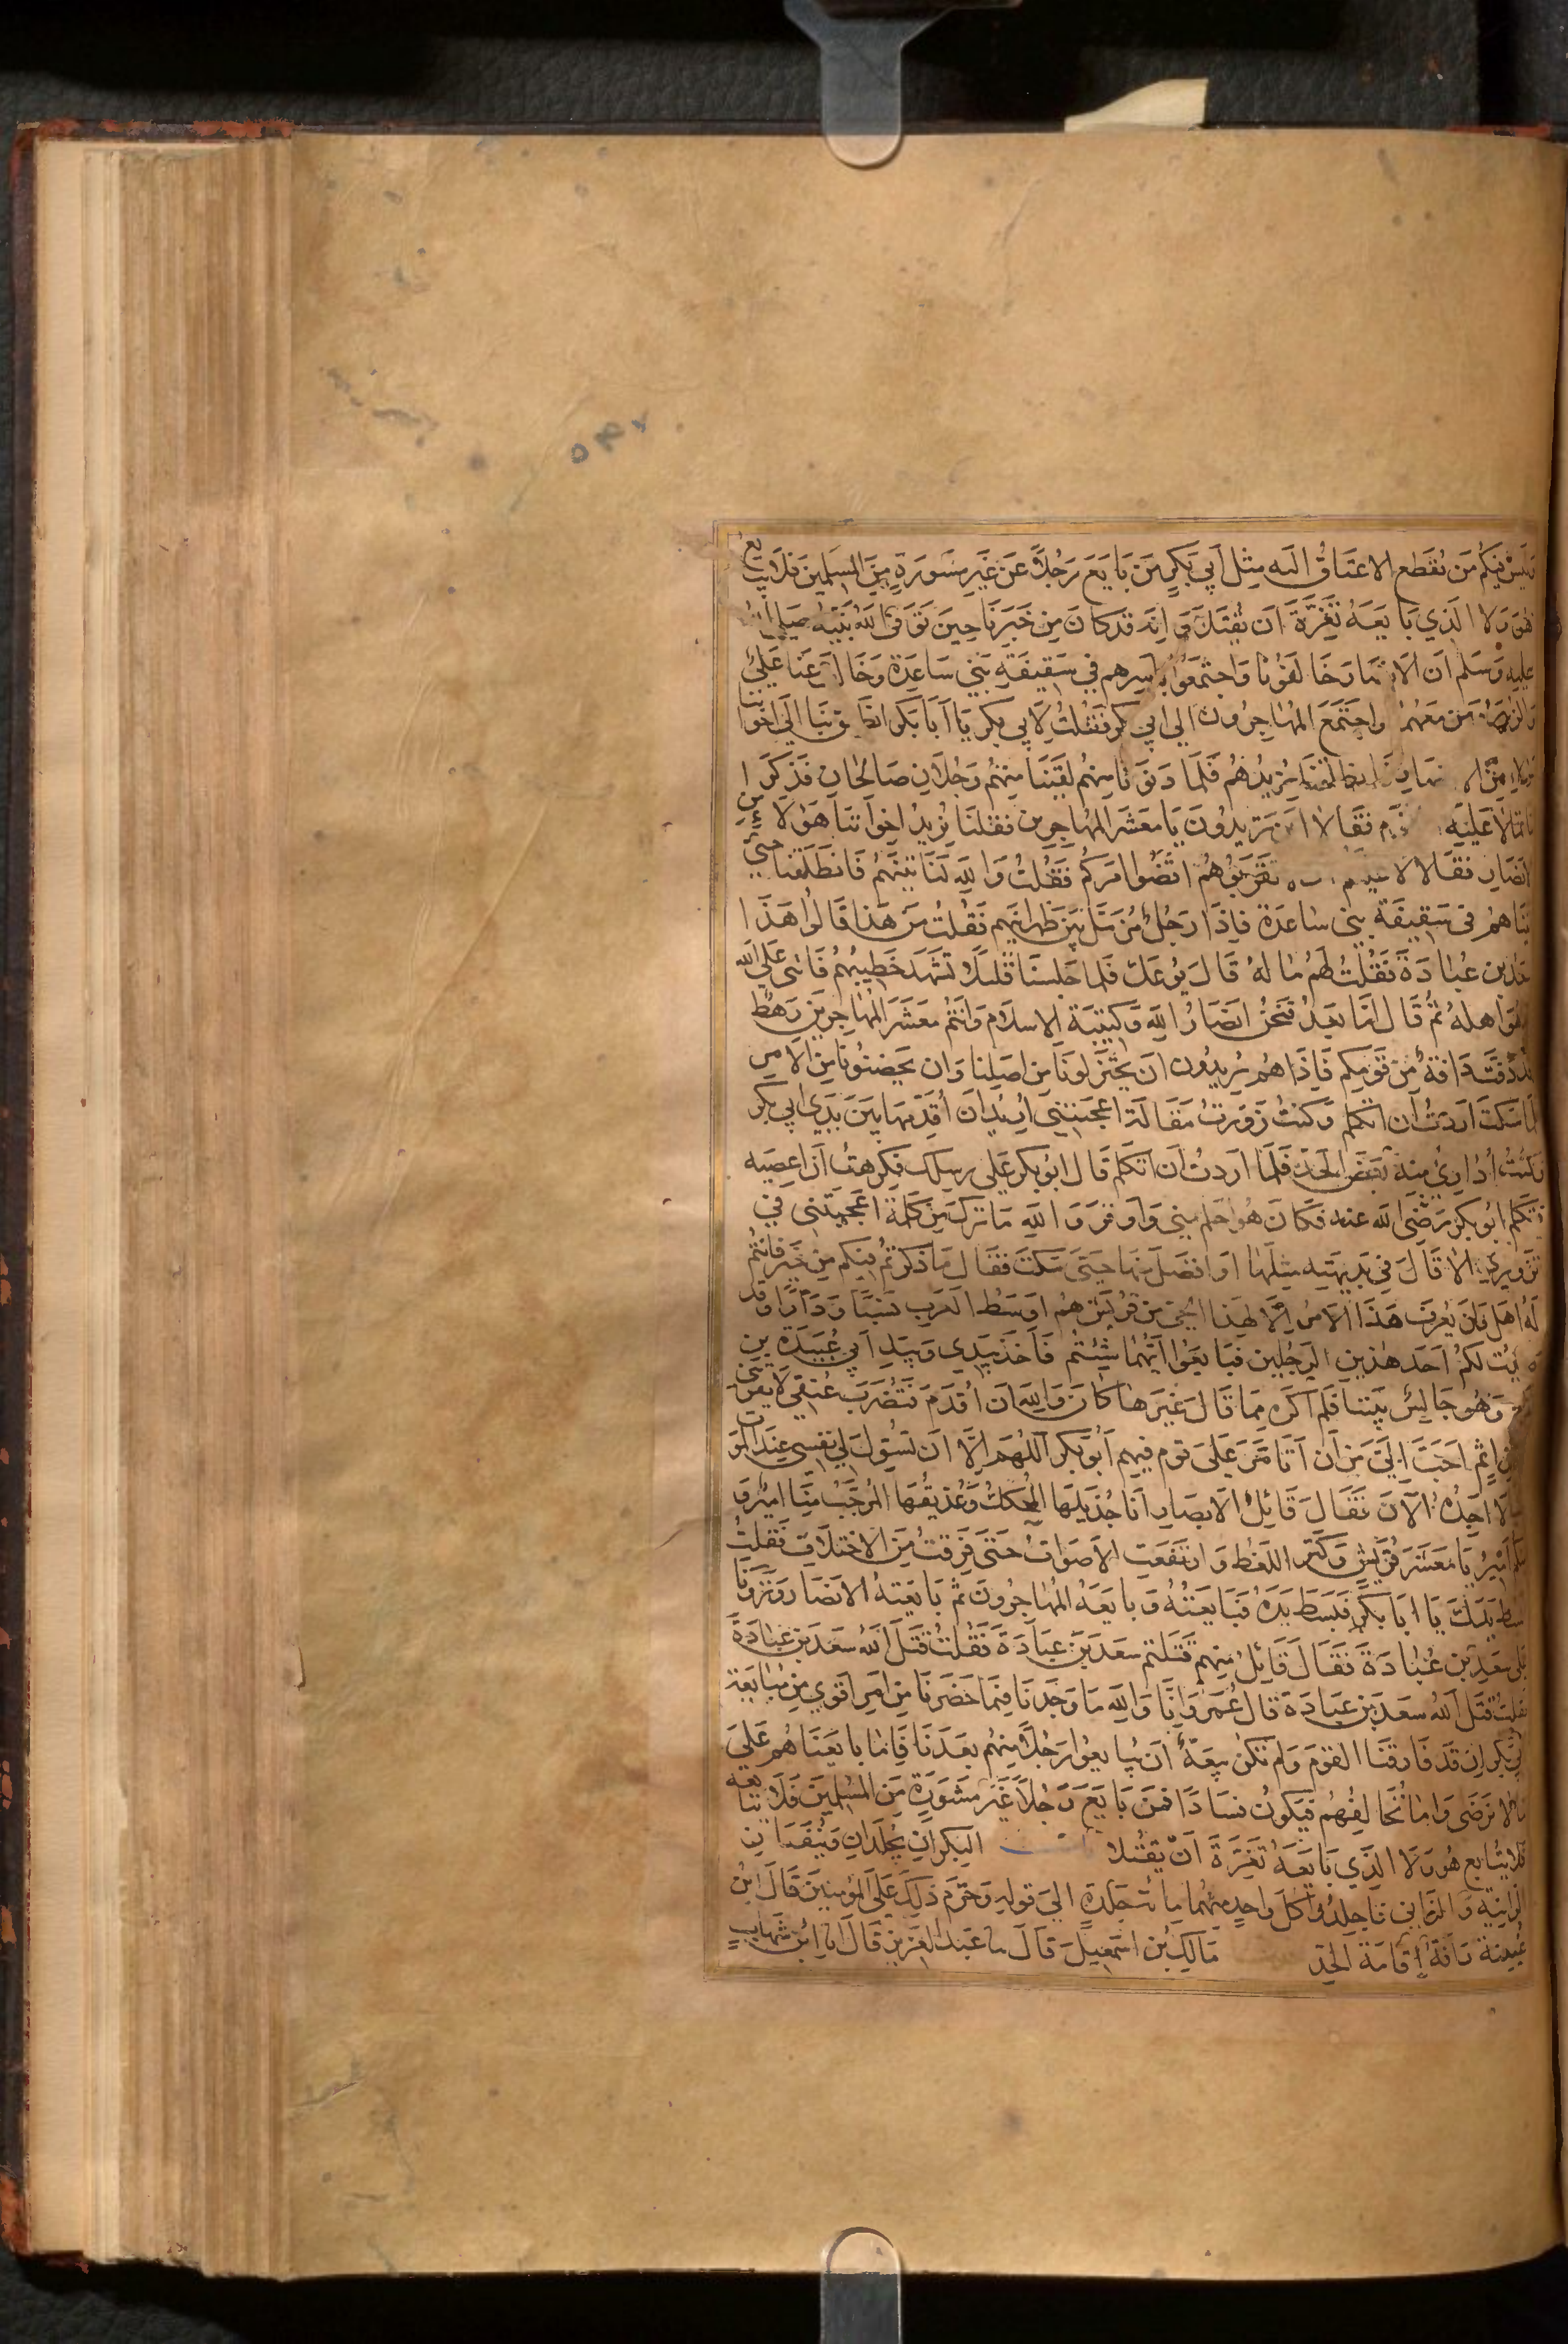 وليس فيكم من تقطع الاعناق اليه مثل ابي بكر من بايع رجلا عن غير مشورة من المسلمين فلا يبايع
هو ولا الذي بايعه تغرة ان يقتلا وانه قد كان من خبرنا حين توفى الله نبيه صلى الله
عليه وسلم ان الانصار خالفونا واجتمعوا باسرهم في سقيفة بني ساعدة وخالف عنا علي
والزبير ومن معهما واجتمع المهاجرون الى ابي بكر فقلت لابي بكر يا ابا بكر انطلق بنا الى اخواننا
هؤلاء من الانصار فانطلقنا نريدهم فلما دنونا منهم لقينا منهم رجلان صالحان فذكرا
ما تمالا عليه القوم فقالا اين تريدون يا معشر المهاجرين فقلنا نريد اخواننا هؤلاء من
الانصار فقالا لا عليكم ان لا تقربوهم اقضوا امركم فقلت والله لناتينهم فانطلقنا حتى
اتيناهم في سقيفة بني ساعدة فاذا رجل مزمل بين ظهرانيهم فقلت من هذا قالوا هذا
سعد بن عبادة فقلت لهم ما له قال يوعك فلما جلسنا قليلا تشهد خطيبهم فاثنى على الله
بما هو اهله ثم قال اما بعد فنحن انصار الله وكتيبة الاسلام وانتم معشر المهاجرين رهط
وقد دفت دافة من قومكم فاذا هم يريدون ان يختزلونا من اصلنا وان يحضنونا من الامر
فلما سكت اردت ان اتكلم وكنت زورت مقالة اعجبتني اريد ان اقدمها بين يدي ابي بكر
وكنت اداري منه بعض الحد فلما اردت ان اتكلم قال ابو بكر على رسلك فكرهت ان اعصيه
فتكلم ابو بكر رضى الله عنه فكان هو احلم مني واوقر والله ما ترك من كلمة اعجبتني في
تزويري الا قال في بديهته مثلها او افضل منها حتى سكت فقال ما ذكرتم فيكم من خير فانتم
له اهل ولن يعرف هذا الامر الا لهذا الحي من قريش هم اوسط العرب نسبا ودارا وقد
رضيت لكم احد هذين الرجلين فبايعوا ايهما شئتم فاخذ بيدي وبيد ابي عبيدة بن
الجراح وهو جالس بيننا فلم اكره مما قال غيرها كان والله ان اقدم فتضرب عنقي لا يقربني
من اثم احب الي من ان اتامر على قوم فيهم ابو بكر اللهم الا ان تسول لي نفسي عند الموت
شيئا لا اجده الان فقال قائل الانصار انا جذيلها المحكك وعذيقها المرجب منا امير و
منكم امير يا معشر قريش وكثر اللغط وارتفعت الاصوات حتى فرقت من الاختلاف فقلت
ابسط يدك يا ابا بكر فبسط يده فبايعته وبايعه المهاجرون ثم بايعته الانصار ونزونا
على سعد بن عبادة فقال قائل منهم قتلتم سعد بن عبادة فقلت قتل الله سعد بن عبادة
فقلت قتل الله سعد بن عبادة قال عمر وانا والله ما وجدنا فيما حضرنا من امر اقوى من مبايعة
ابي بكر ان قد فارقنا القوم ولم تكن بيعة ان يبايعوا رجلا منهم بعدنا فاما بايعناهم على
ما لا نرضى واما نخالفهم فيكون فسادا فمن بايع رجلا غير مشورة من المسلمين فلا يتابعه
فلا يتابع هو ولا الذي بايعه تغرة ان يقتلا البكران يجلدان وينفيان
الزانية والزاني فاجلدوا كل واحد منهما مائة جلدة الى قوله وحرم ذلك على المؤمنين قال ابن
عيينة رافة اقامة الحد مالك بن اسمعيل قال سا عبد العزيز قال انا ابن شهاب